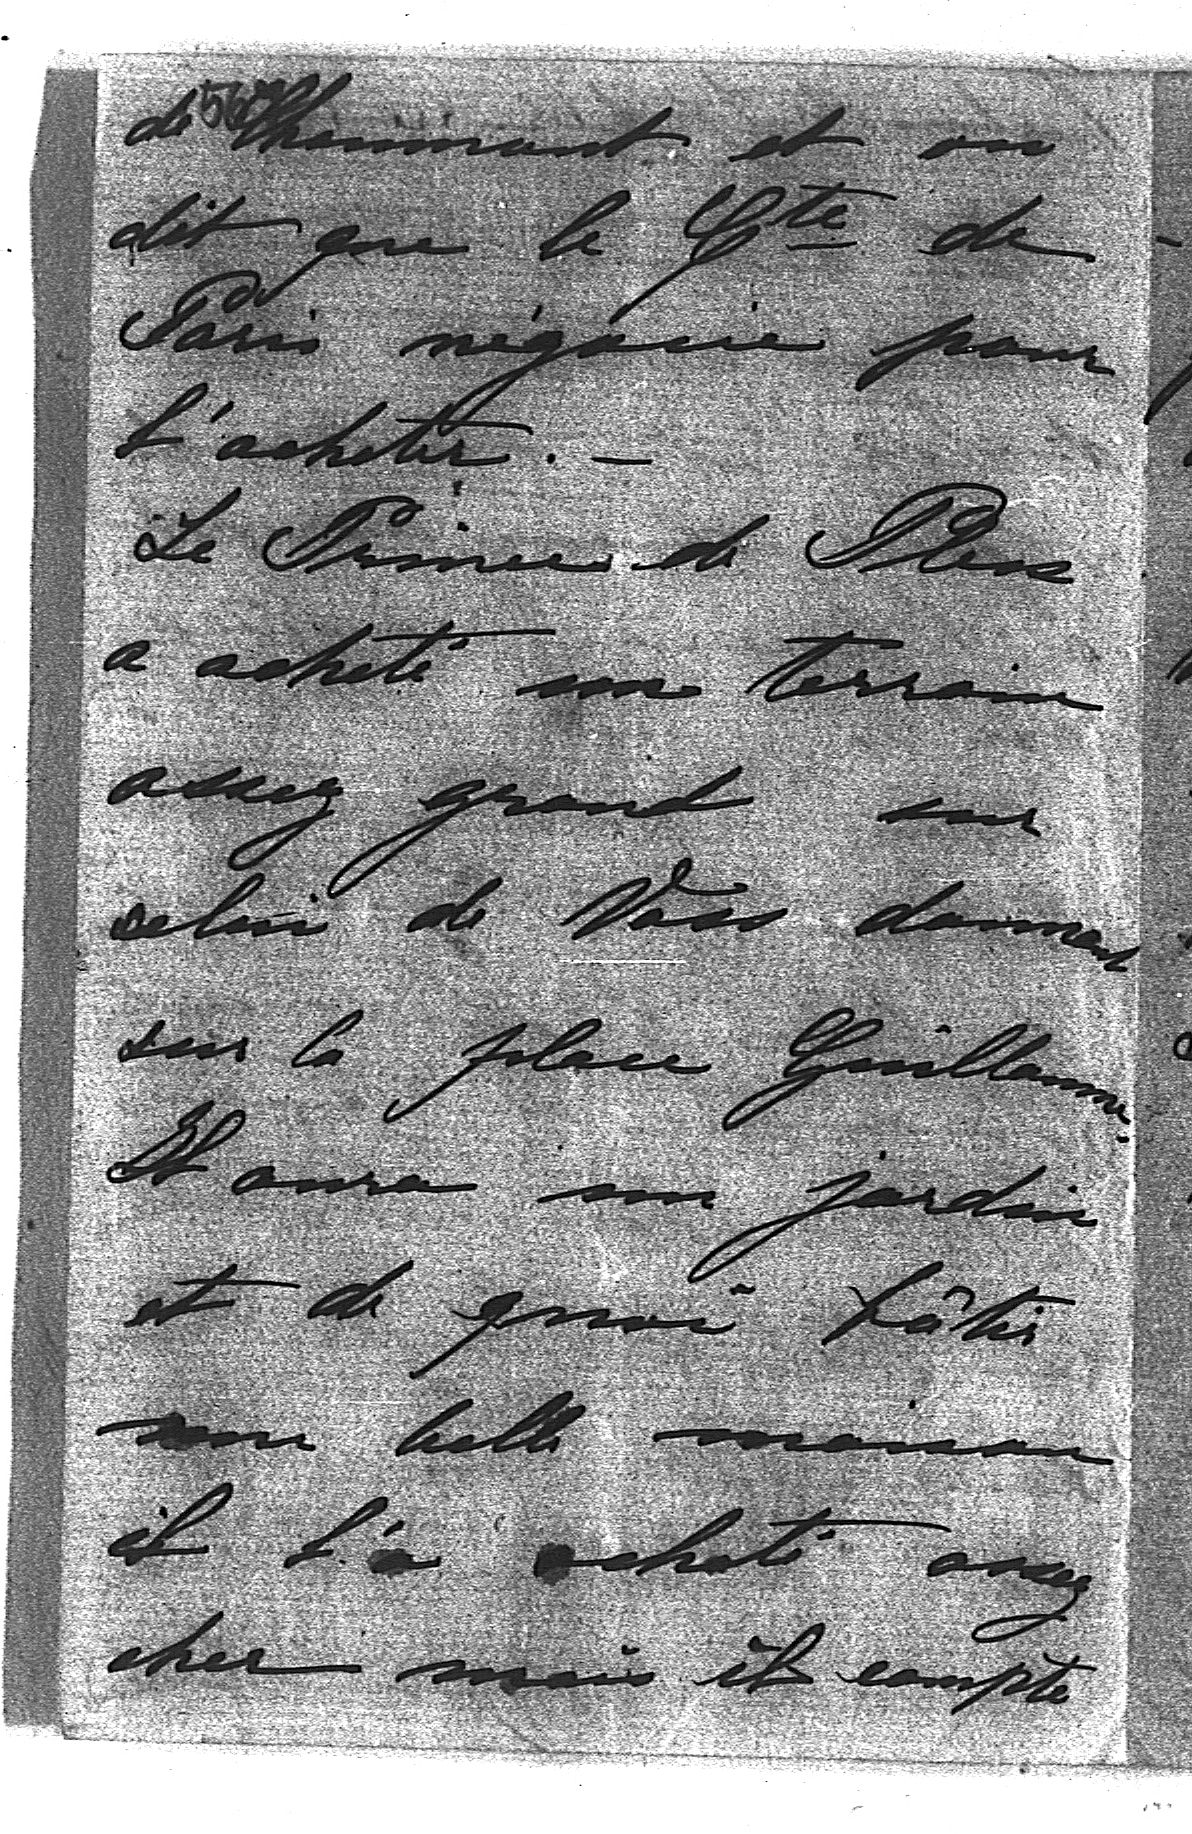 de Chaumont et on
dit que le Cte de
Paris négocie pour
l'acheter. —
Le Prince de Pless
a acheté un terrain
assez grand sur
celui de Voss donnant
sur la place Guillaume.
Il aura un jardin
et de quoi bâtir
une belle maison
il l'a acheté assez
cher mais il compte